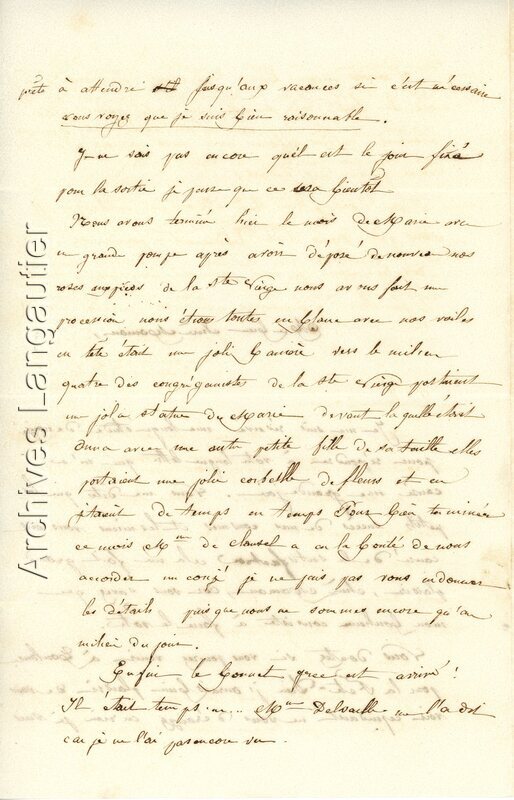 prête à attendre jusqu'aux vacances si c'est nécessaire
vous voyez que je suis bien raisonnable.
Je ne sais pas encore quel est le jour fixé
pour la sortie je pense que ce sera bientôt
Nous avons terminé hier le mois de Marie avec
une grande pompe après avoir déposé de nouveau nos
roses aux pieds de la Ste Vierge nous avons fait une
procession nous étions toutes en blanc avec nos voiles
en tête était une jolie bannière vers le milieu
quatre des congréganistes de la Ste Vierge portaient
une jolie statue de Marie devant laquelle était
Anna avec une autre petite fille de sa taille elles
portaient une jolie corbeille de fleurs et en
jetaient de temps en temps Pour bien terminer
ce mois Mme de Clausel a eu la bonté de nous
accorder un congé je ne puis pas vous en donner
les détails puisque nous ne sommes encore qu'au
milieu du jour.
Enfin le bonnet grec est arrivé!
Il était temps..... Mme Delvaille me l'a dit
car je ne l'ai pas encore vu.
Archives Langautier